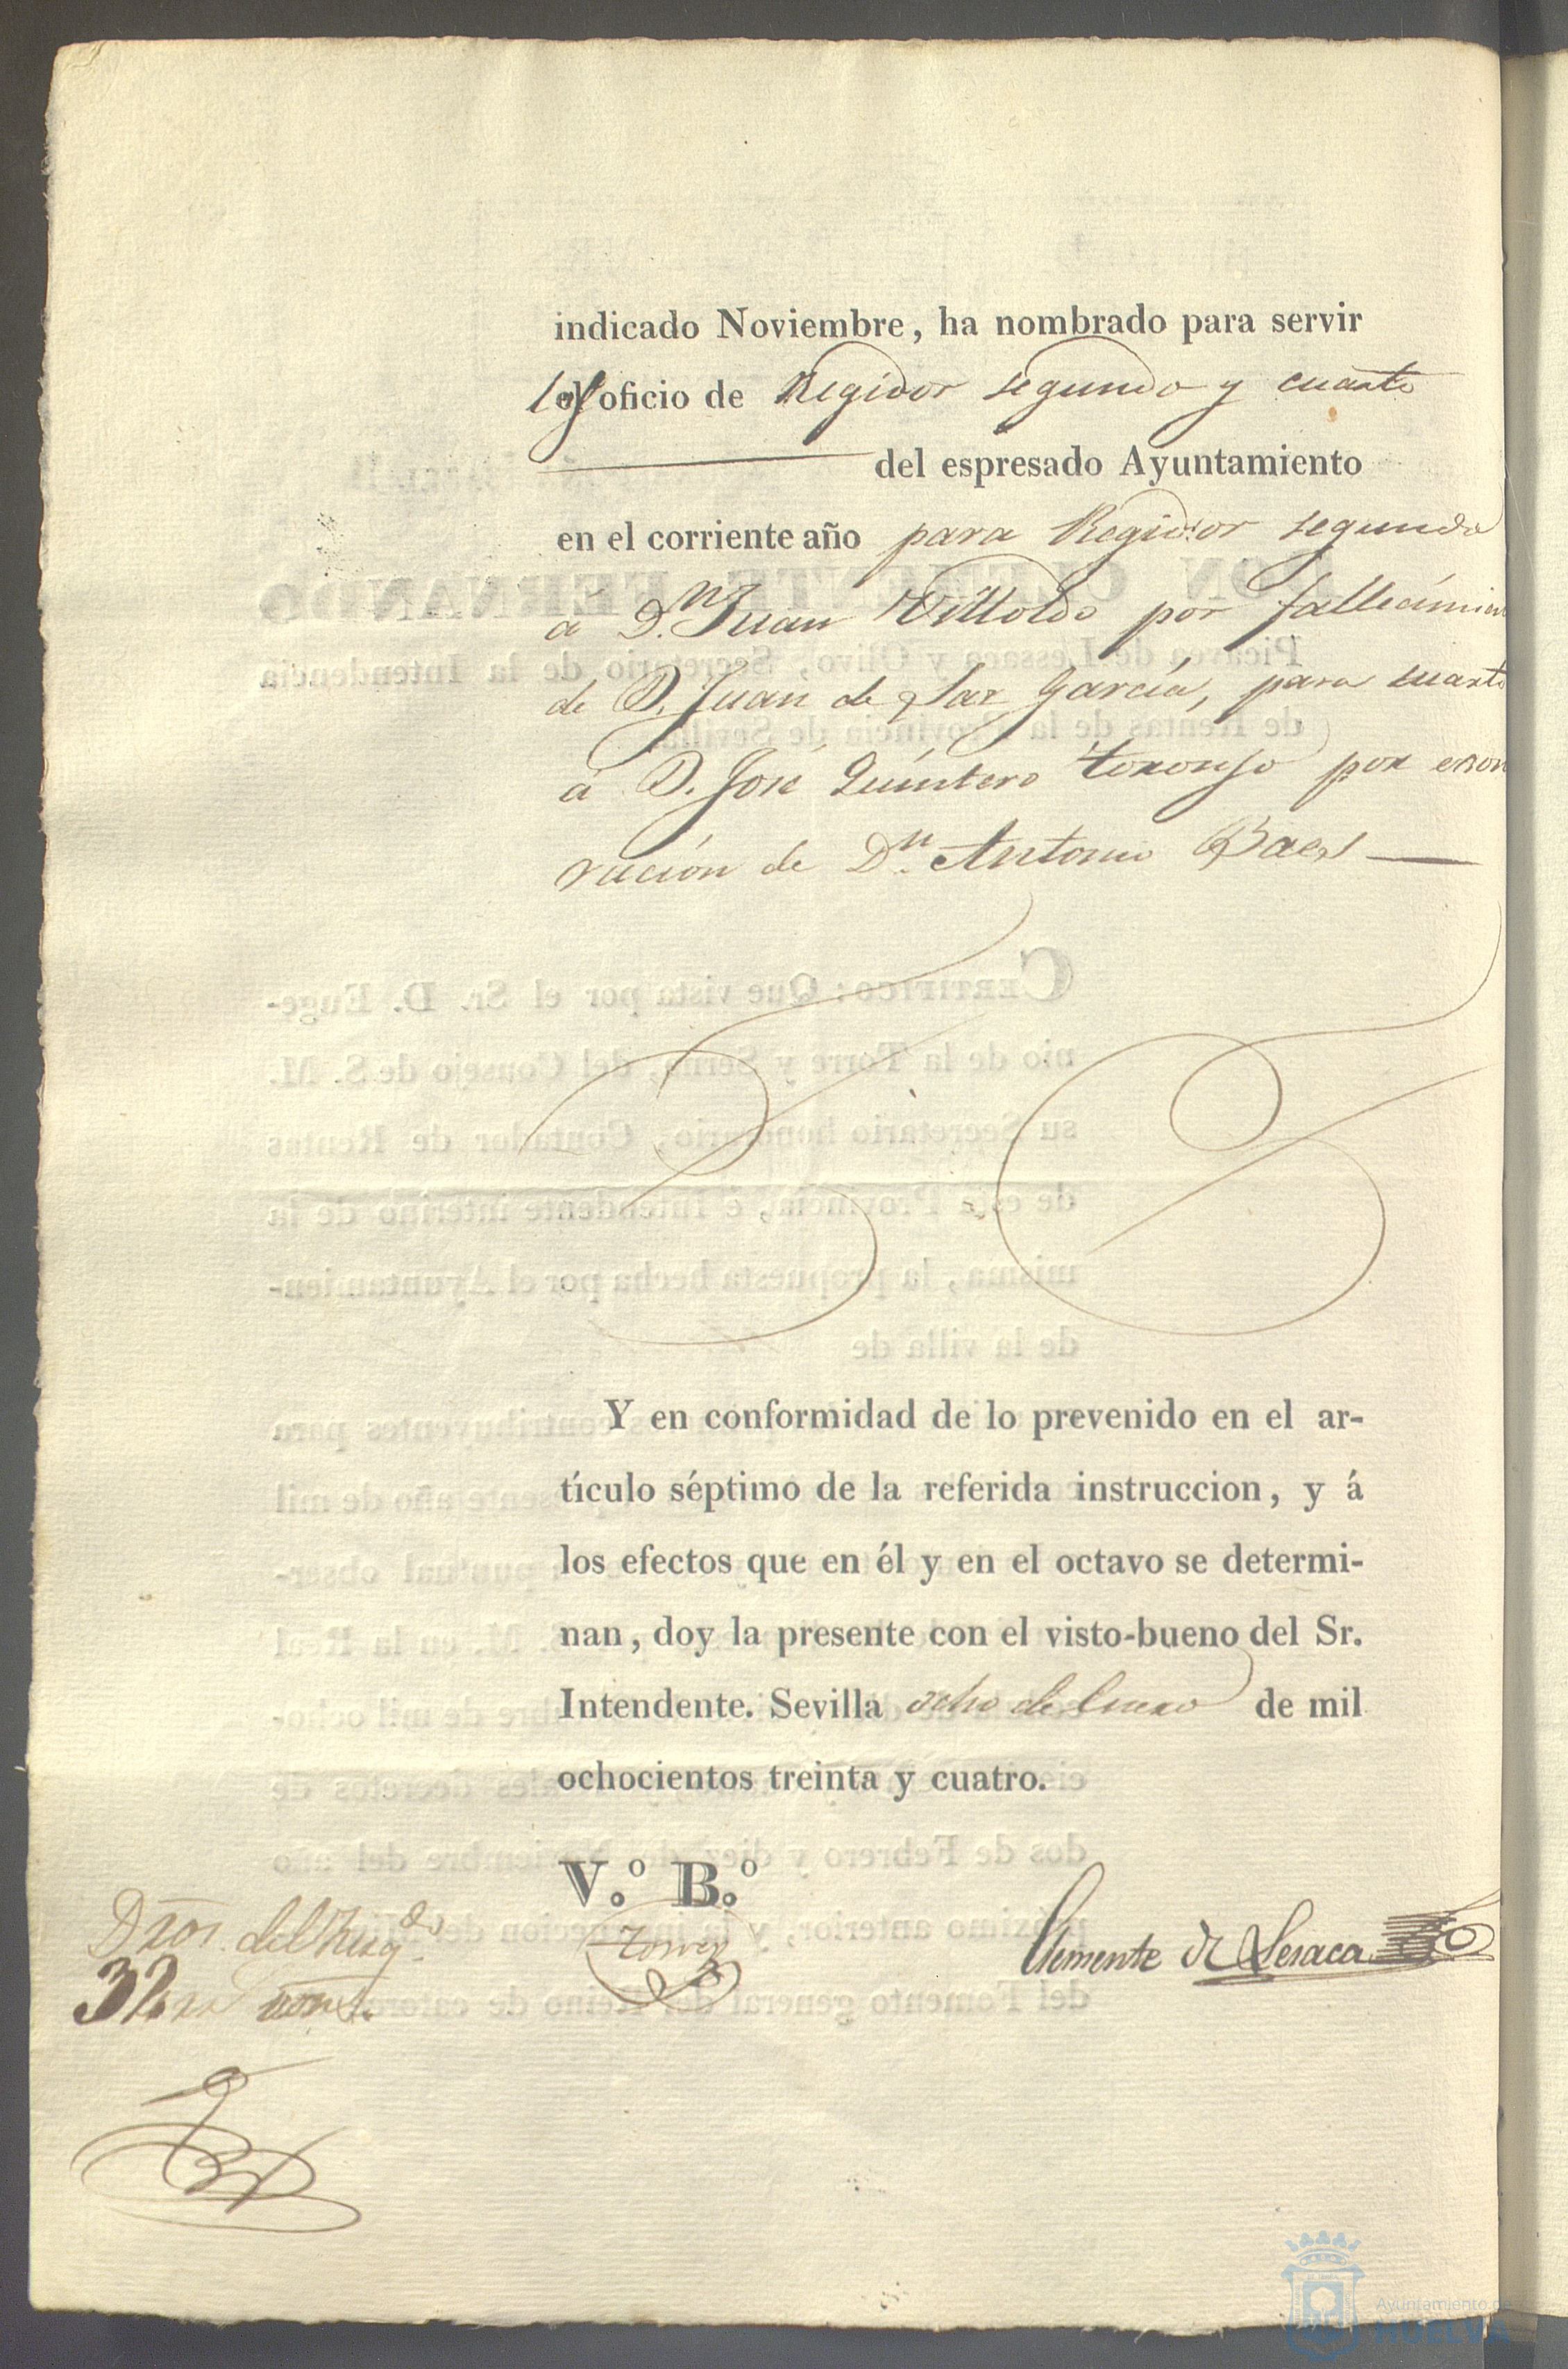 indicado Noviembre, ha nombrado para servir
los oficio de Regidor segundo y cuarto
del espresado Ayuntamiento
en el corriente año para Regidor segundo
á D.n Juan Villoldo por fallecimien
de D. Juan de Saz García, para cuarto
á D. José Quintero toronjo por exon
racion de D.n Antonio Baez
Y en conformidad de lo prevenido en el ar-
tículo séptimo de la referida instruccion, y á
los efectos que en él y en el octavo se determi-
nan, doy la presente con el visto-bueno del Sr.
Intendente. Sevilla ocho de Enero de mil
ochocientos treinta y cuatro.
V.º B.º
Torre
Clemente de Lesaca
Dros. del
32
Ayuntamiento de
HUELVA